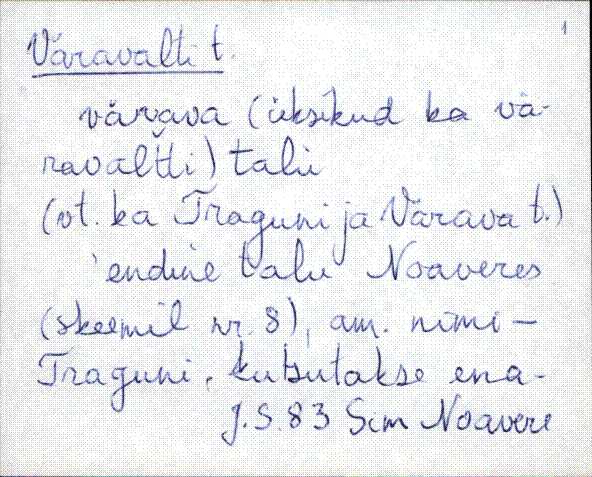 1
Väravalti t.
värava (üksikud ka vä-
ravaltti) talu
(vt. ka Traguni ja Värava t.)
endine talu Noaveres
(skeemil nr. 8), am. nimi –
Traguni. Kutsutakse ena-
J.S. 83 Sim Noavere